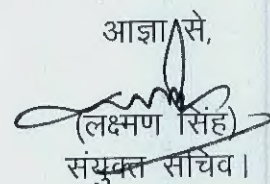 आज्ञा से,
(लक्ष्मण सिंह)
संयुक्त सचिव।